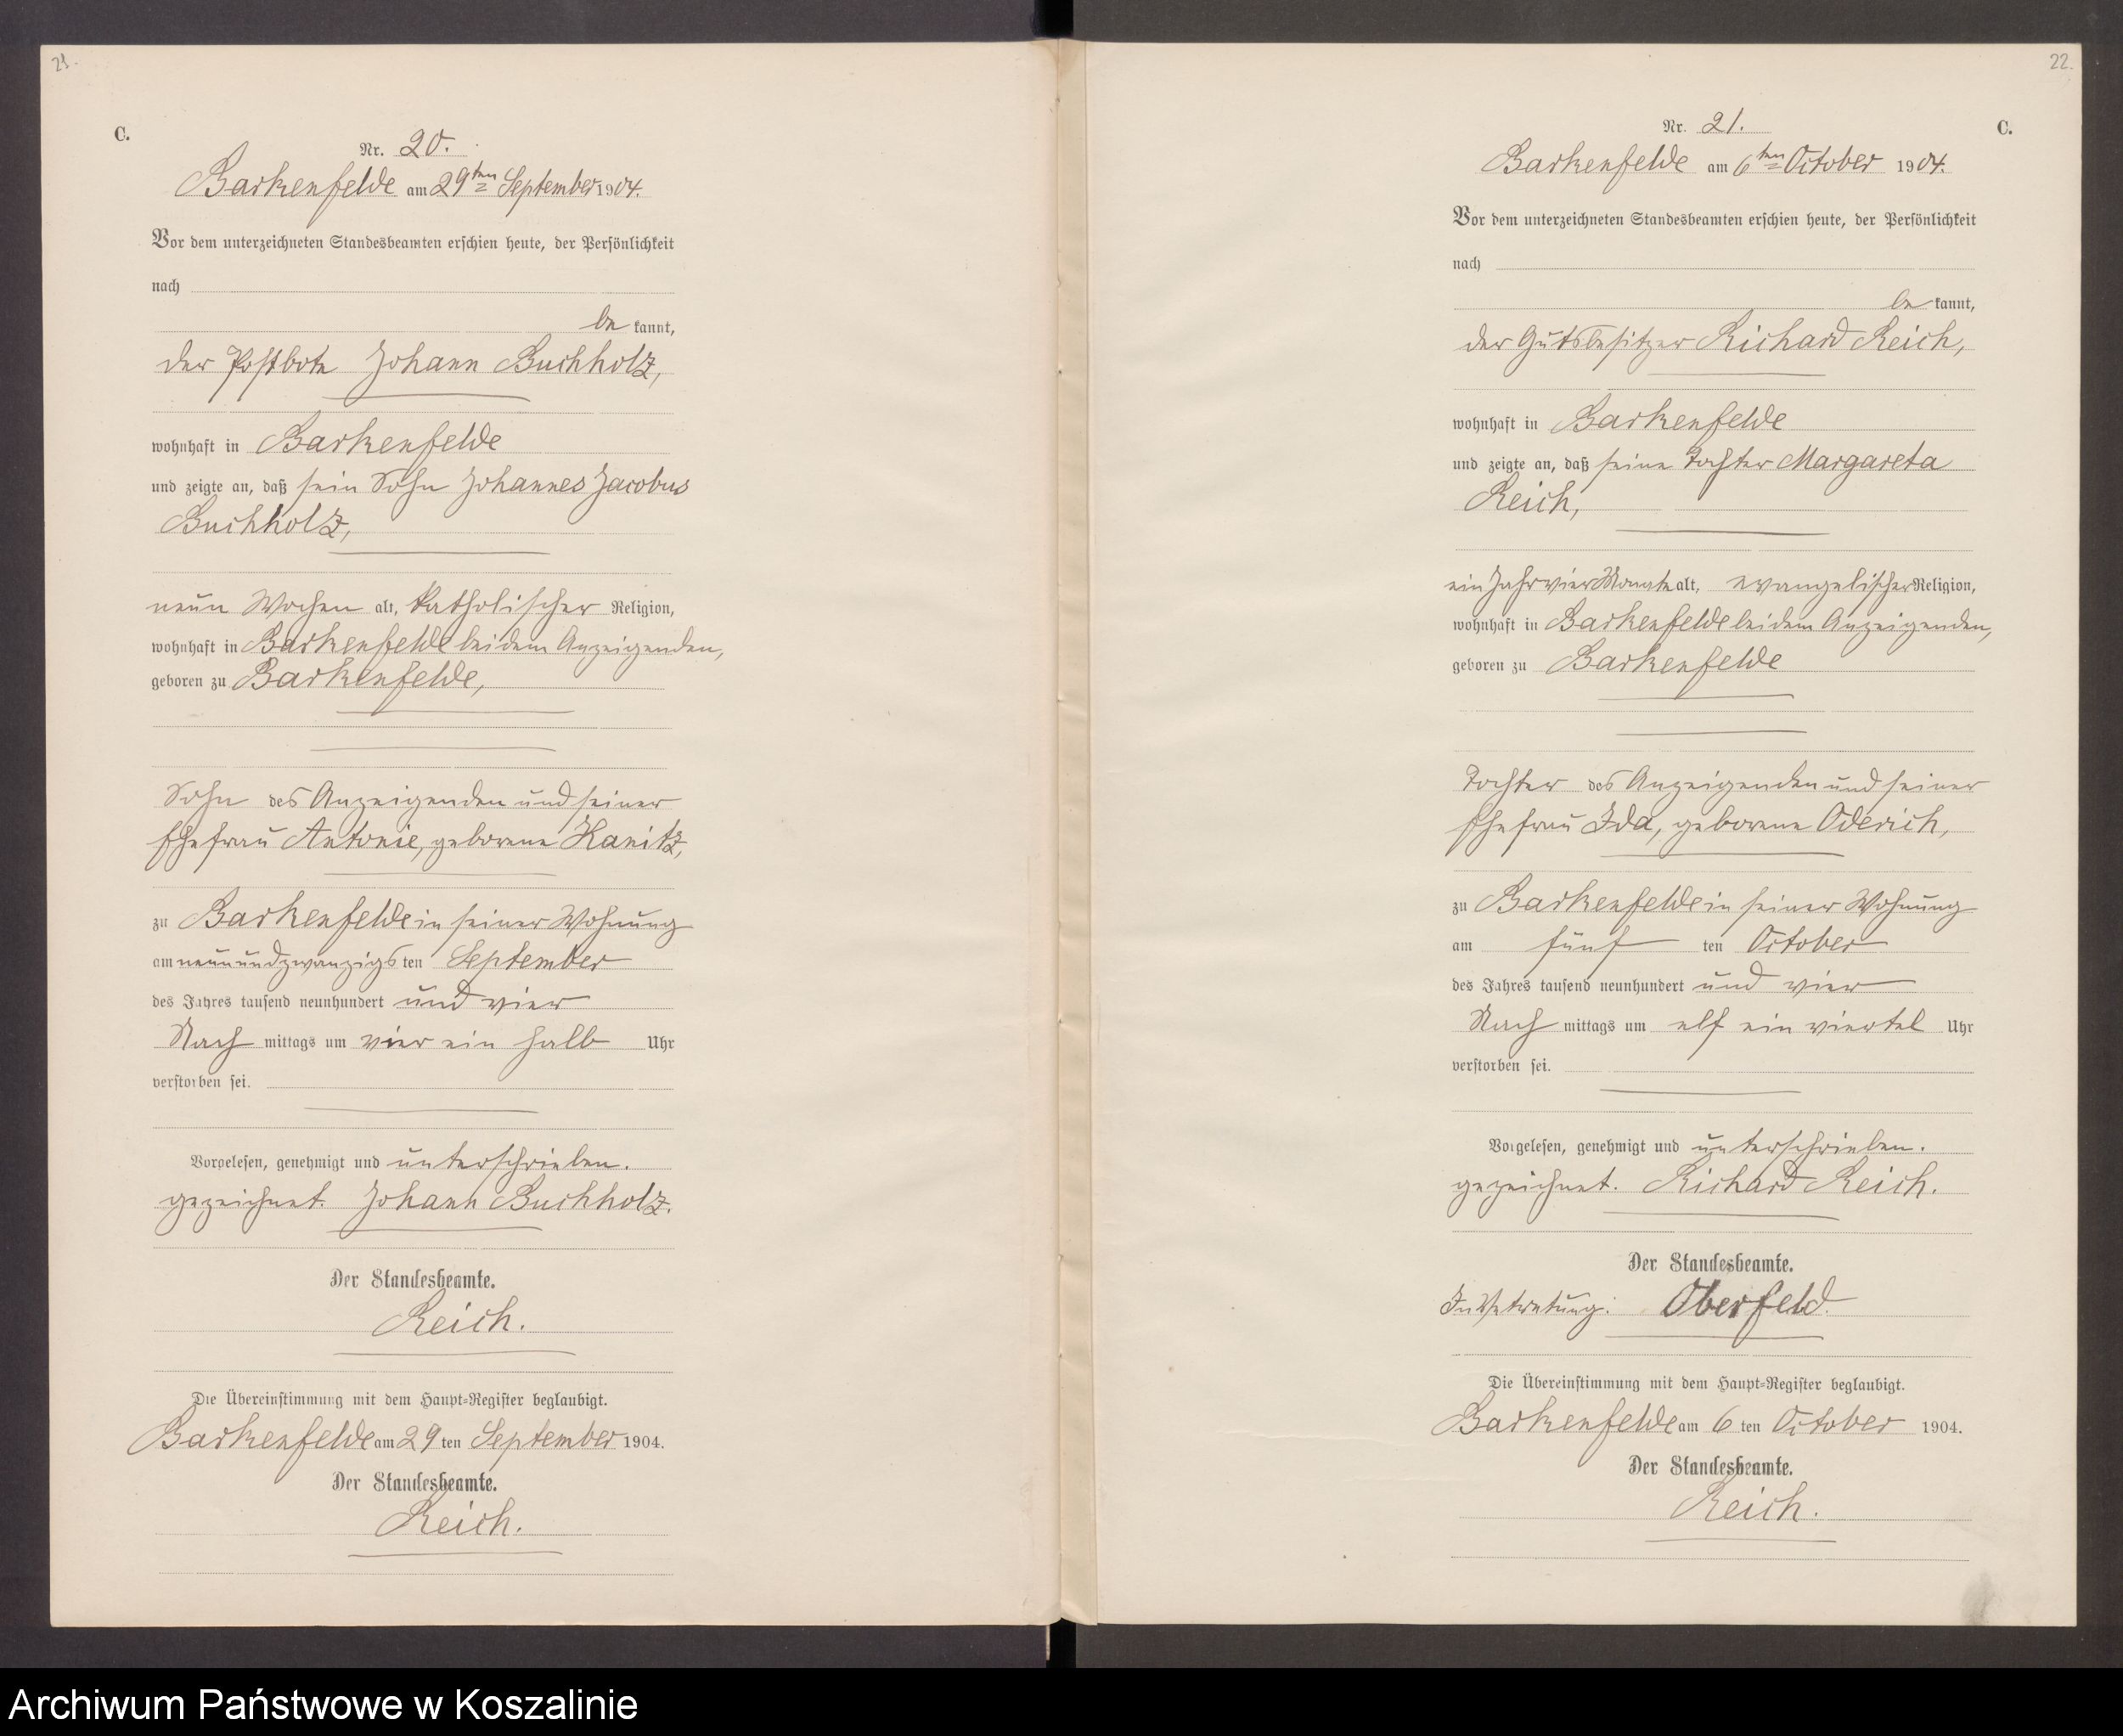 21.
C.
Nr. 20.
Barkenfelde am 29ten September 1904.
Vor dem unterzeichneten Standesbeamten erschien heute, der Persönlichkeit
nach
be kannt,
der Postbote Johann Buchholz,
wohnhaft in Barkenfelde
und zeigte an, daß sein Sohn Johannes Jacobus
Buchholz,
neun Wochen alt, katholischer Religion,
wohnhaft in Barkenfelde bei dem Anzeigenden,
geboren zu Barkenfelde,
Sohn des Anzeigenden und seiner
Ehefrau Antonie, geborene Kanitz,
zu Barkenfelde in seiner Wohnung
am neunundzwanzigs ten September
des Jahres tausend neunhundert und vier
Nach mittags um vier ein halb Uhr
verstorben sei.
Vorgelesen, genehmigt und unterschrieben.
gezeichnet. Johann Buchholz.
Der Standesbeamte.
Reich.
Die Übereinstimmung mit dem Haupt-Register beglaubigt.
Barkenfelde am 29 ten September 1904.
Der Standesbeamte.
Reich.
22.
C.
Nr. 21.
Barkenfelde am 6ten October 1904.
Vor dem unterzeichneten Standesbeamten erschien heute, der Persönlichkeit
nach
be kannt,
der Gutsbesitzer Richard Reich,
wohnhaft in Barkenfelde
und zeigte an, daß seine Tochter Margareta
Reich,
ein Jahr vier Monate alt, evangelischer Religion,
wohnhaft in Barkenfelde bei dem Anzeigenden,
geboren zu Barkenfelde
Tochter des Anzeigenden und seiner
Ehefrau Ida, geborene Oderich,
zu Barkenfelde in seiner Wohnung
am fünf ten October
des Jahres tausend neunhundert und vier
Nach mittags um elf ein viertel Uhr
verstorben sei.
Vorgelesen, genehmigt und unterschrieben.
gezeichnet. Richard Reich.
Der Standesbeamte.
In Vertretung: Oberfeld.
Die Übereinstimmung mit dem Haupt-Register beglaubigt.
Barkenfelde am 6 ten October 1904.
Der Standesbeamte.
Reich.
Archiwum Państwowe w Koszalinie